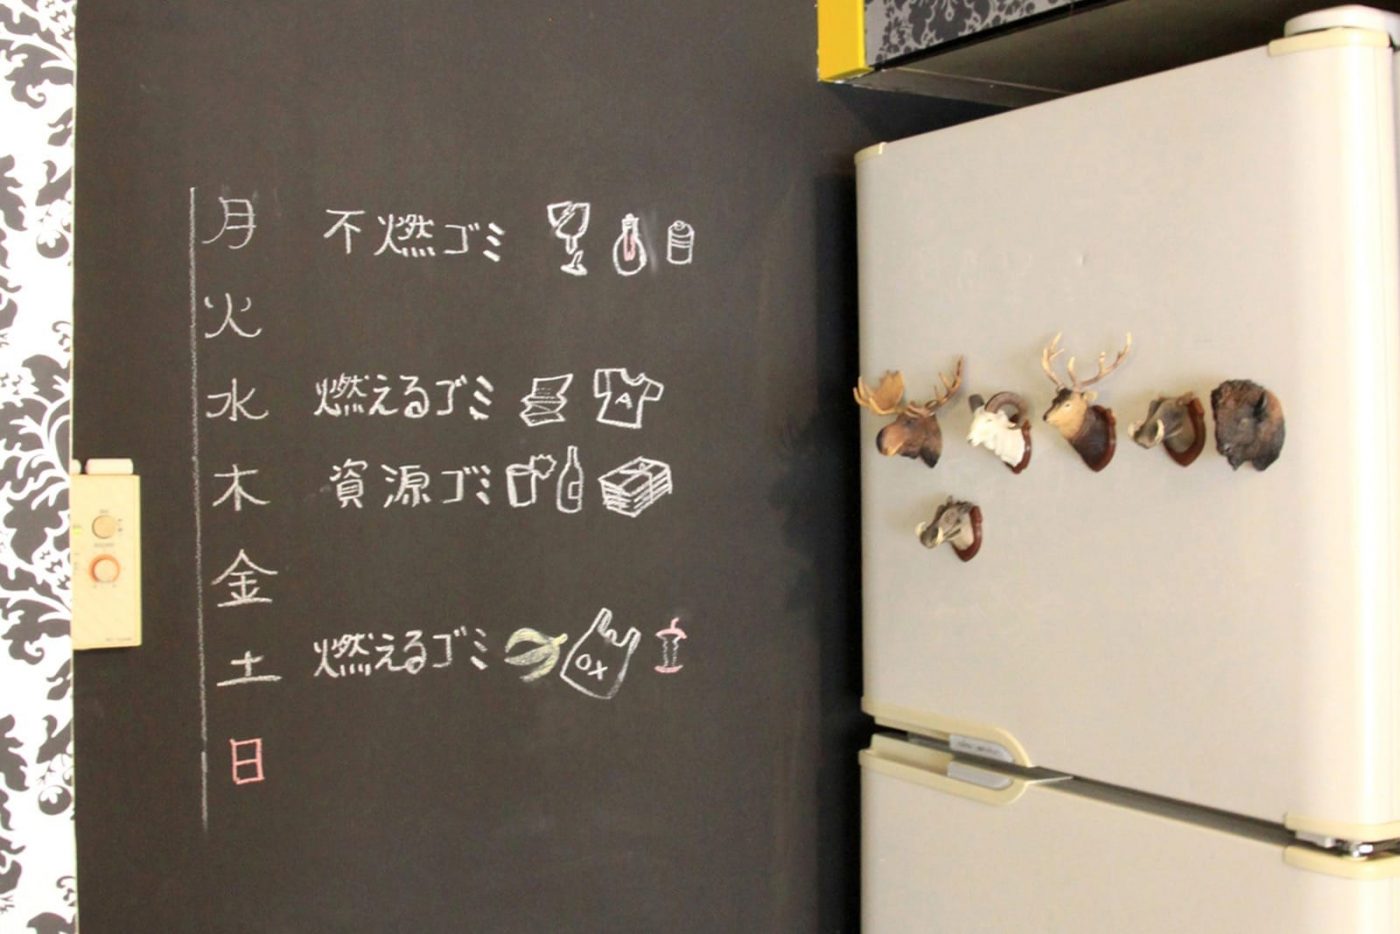 月 不燃ゴミ
火
水 燃えるゴミ A
木 資源ゴミ
金
土 燃えるゴミ OX
日